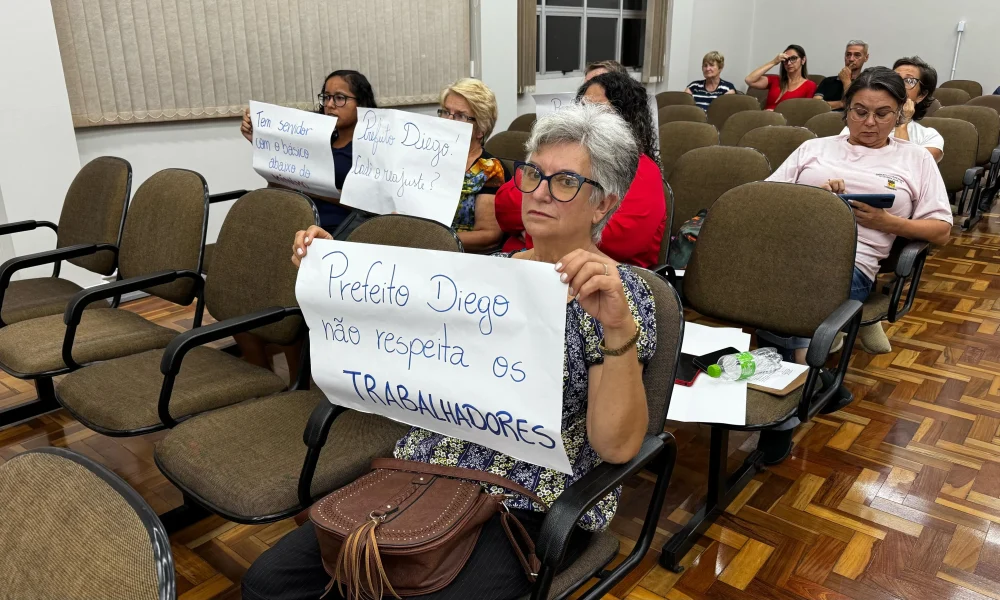 Tem servidor
com o básico
abaixo do
Prefeito Diego!
Cadê o reajuste?
Prefeito Diego
não respeita os
TRABALHADORES